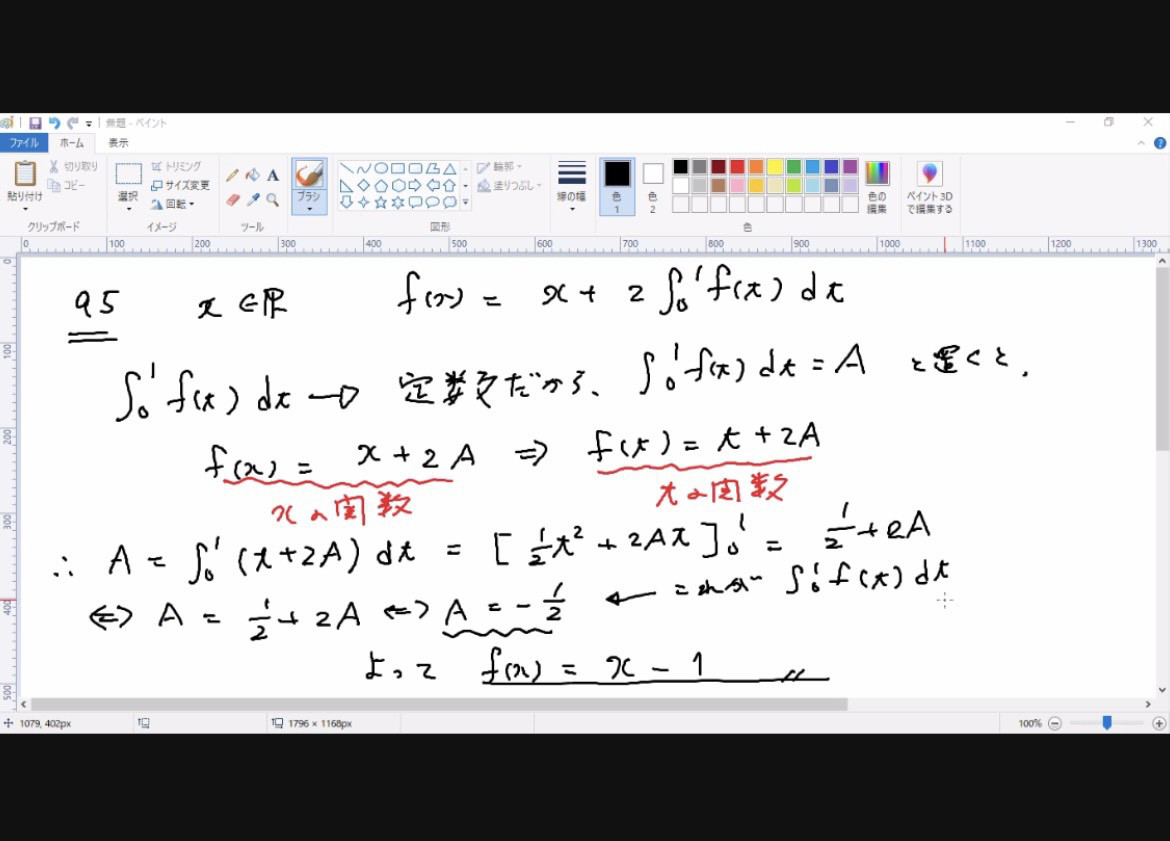 無題 - ペイント
ファイル ホーム 表示
貼り付け 切り取り コピー クリップボード
選択 トリミング サイズ変更 回転 イメージ
A ツール
ブラシ
輪郭 塗りつぶし 図形
線の幅
色 1 色 2 色の編集 色
ペイント 3D で編集する
0 100 200 300 400 500 600 700 800 900 1000 1100 1200 1300
0 100 200 300 400 500
95 x∈ℝ f(x) = x + 2∫₀¹f(t)dt
∫₀¹f(t)dt → 定数だから、∫₀¹f(t)dt = A と置くと、
f(x) = x + 2A ⇒ f(t) = t + 2A
xの関数 tの関数
∴ A = ∫₀¹(t+2A)dt = [½t² + 2At]₀¹ = ½ + 2A
⇔ A = ½ + 2A ⇔ A = -½ ← これが ∫₀¹f(t)dt
よって f(x) = x - 1
1079, 402px 1796 × 1168px 100%